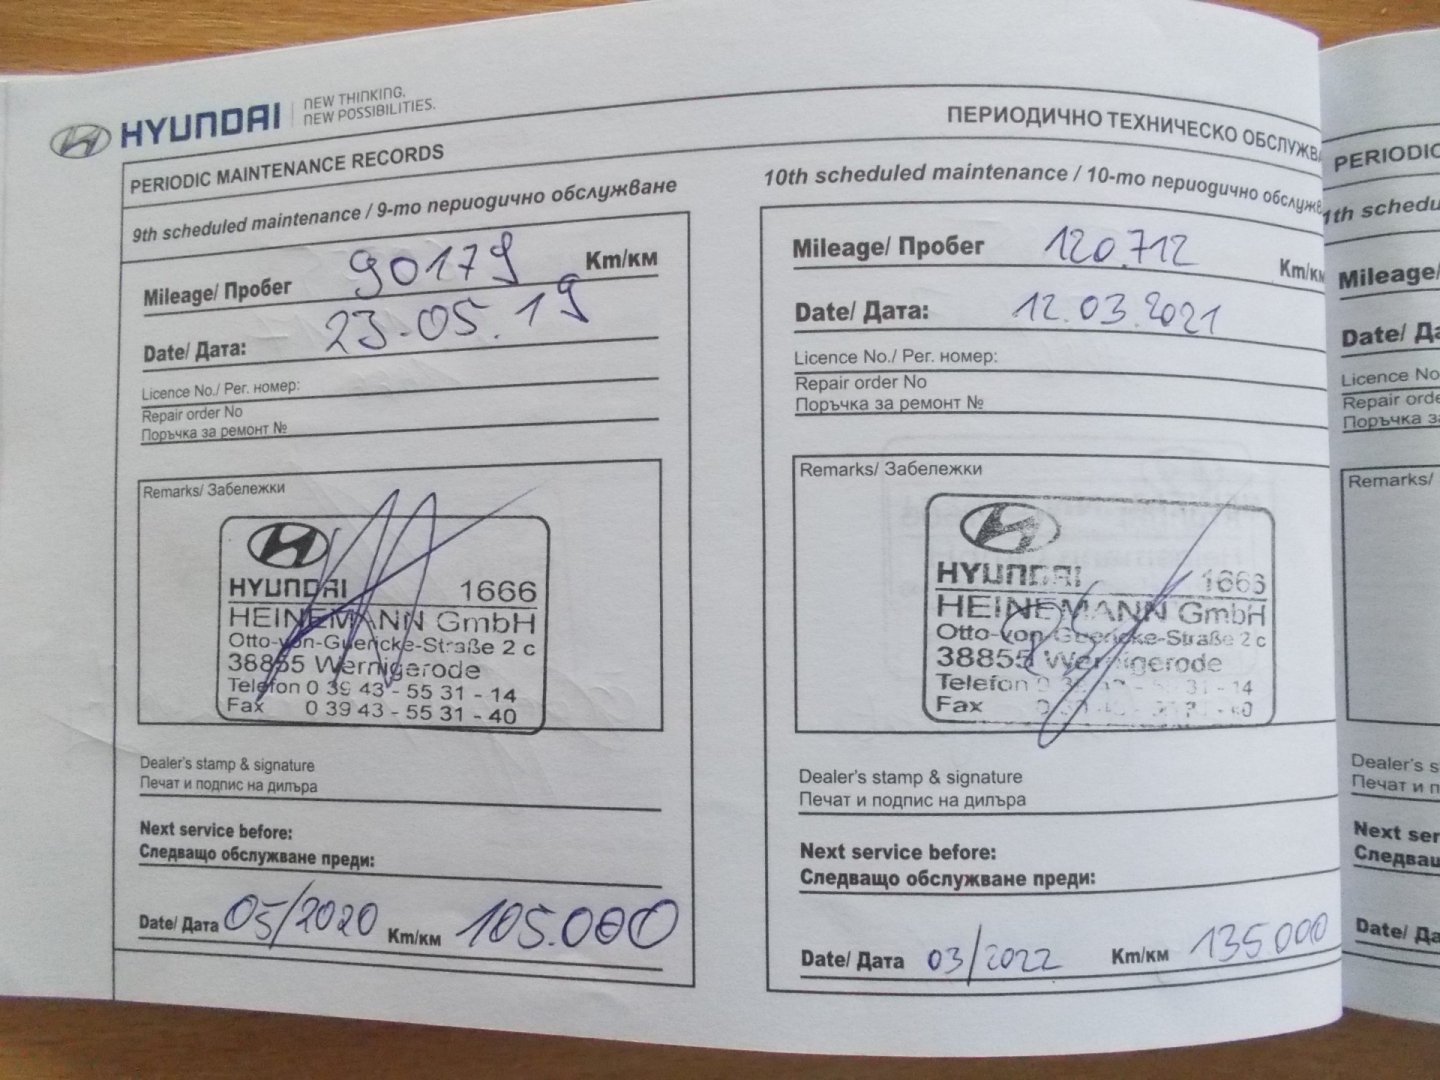 HYUNDAI | NEW THINKING.
NEW POSSIBILITIES.
PERIODIC MAINTENANCE RECORDS
9th scheduled maintenance / 9-то периодично обслужване
Mileage/ Пробег 90179 Km/км
Date/ Дата: 23.05.19
Licence No./ Рег. номер:
Repair order No
Поръчка за ремонт №
Remarks/ Забележки
HYUNDAI 1666
HEINEMANN GmbH
Otto-von-Guericke-Straße 2 c
38855 Wernigerode
Telefon 0 39 43 - 55 31 - 14
Fax 0 39 43 - 55 31 - 40
Dealer's stamp & signature
Печат и подпис на дилъра
Next service before:
Следващо обслужване преди:
Date/ Дата 05/2020 Km/км 105.000
ПЕРИОДИЧНО ТЕХНИЧЕСКО ОБСЛУЖВА
10th scheduled maintenance / 10-то периодично обслужв
Mileage/ Пробег 120.712 Km/км
Date/ Дата: 12.03.2021
Licence No./ Рег. номер:
Repair order No
Поръчка за ремонт №
Remarks/ Забележки
HYUNDAI 1666
HEINEMANN GmbH
Otto-von-Guericke-Straße 2 c
38855 Wernigerode
Telefon 0 39 43 - 55 31 - 14
Fax 0 39 43 - 55 31 - 40
Dealer's stamp & signature
Печат и подпис на дилъра
Next service before:
Следващо обслужване преди:
Date/ Дата 03/2022 Km/км 135.000
PERIODIC
1th schedu
Mileage/
Date/ Да
Licence No
Repair orde
Поръчка за
Remarks/
Dealer's s
Печат и п
Next ser
Следващ
Date/ Да